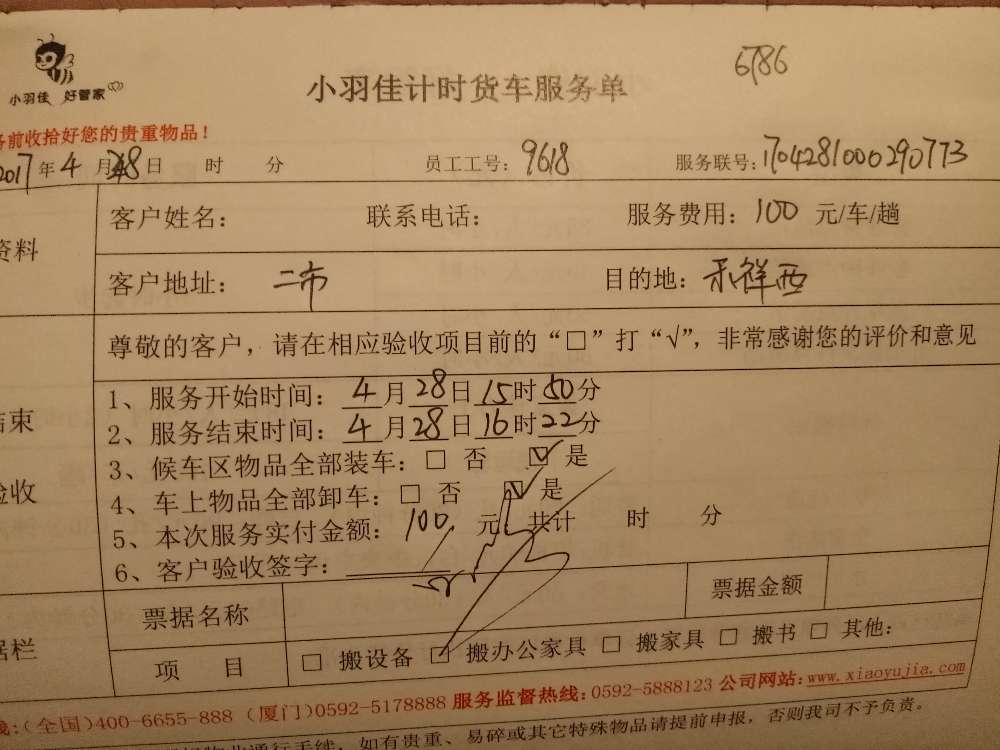 6786
小羽佳 好管家
小羽佳计时货车服务单
前收拾好您的贵重物品！
2017年4月28日 时 分 员工工号：9618 服务联号：1704281000290773
资料
客户姓名： 联系电话： 服务费用：100 元/车/趟
客户地址：二市 目的地：禾祥西
尊敬的客户，请在相应验收项目前的“□”打“√”，非常感谢您的评价和意见
结束
验收
1、服务开始时间：4月28日15时50分
2、服务结束时间：4月28日16时22分
3、候车区物品全部装车：□ 否 ☑ 是
4、车上物品全部卸车：□ 否 ☑ 是
5、本次服务实付金额：100元，共计 时 分
6、客户验收签字：
据栏
票据名称 票据金额
项 目 □ 搬设备 □ 搬办公家具 □ 搬家具 □ 搬书 □ 其他：
线：（全国）400-6655-888 （厦门）0592-5178888 服务监督热线：0592-5888123 公司网站：www.xiaoyujia.com
通行手续，如有贵重、易碎或其它特殊物品请提前申报，否则我司不予负责。